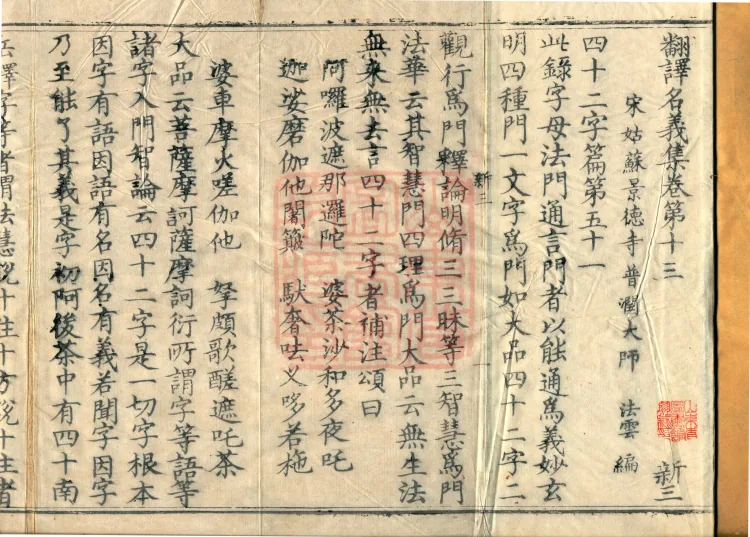 翻譯名義集卷第十三 新三
宋姑蘇景德寺普潤大師 法雲 編
四十二字篇第五十一
此錄字母法門通言門者以能通爲義妙玄
明四種門一文字爲門如大品四十二字二
觀行爲門釋論明脩三三昧等三智慧爲門
新三 一
法華云其智慧門四理爲門大品云無生法
無來無去言四十二字者補注頌曰
阿囉波遮那邏陀 婆茶沙和多夜吒
迦娑磨伽他闍簸 馱奢呿叉哆若拖
婆車摩火嗟伽他 拏頗歌醝遮吒茶
大品云菩薩摩訶薩摩訶衍所謂字等語等
諸字入門智論云四十二字是一切字根本
因字有語因語有名因名有義若聞字因字
乃至能了其義是字初阿後茶中有四十南
岳釋字等者謂法慧說十住十方說十主者